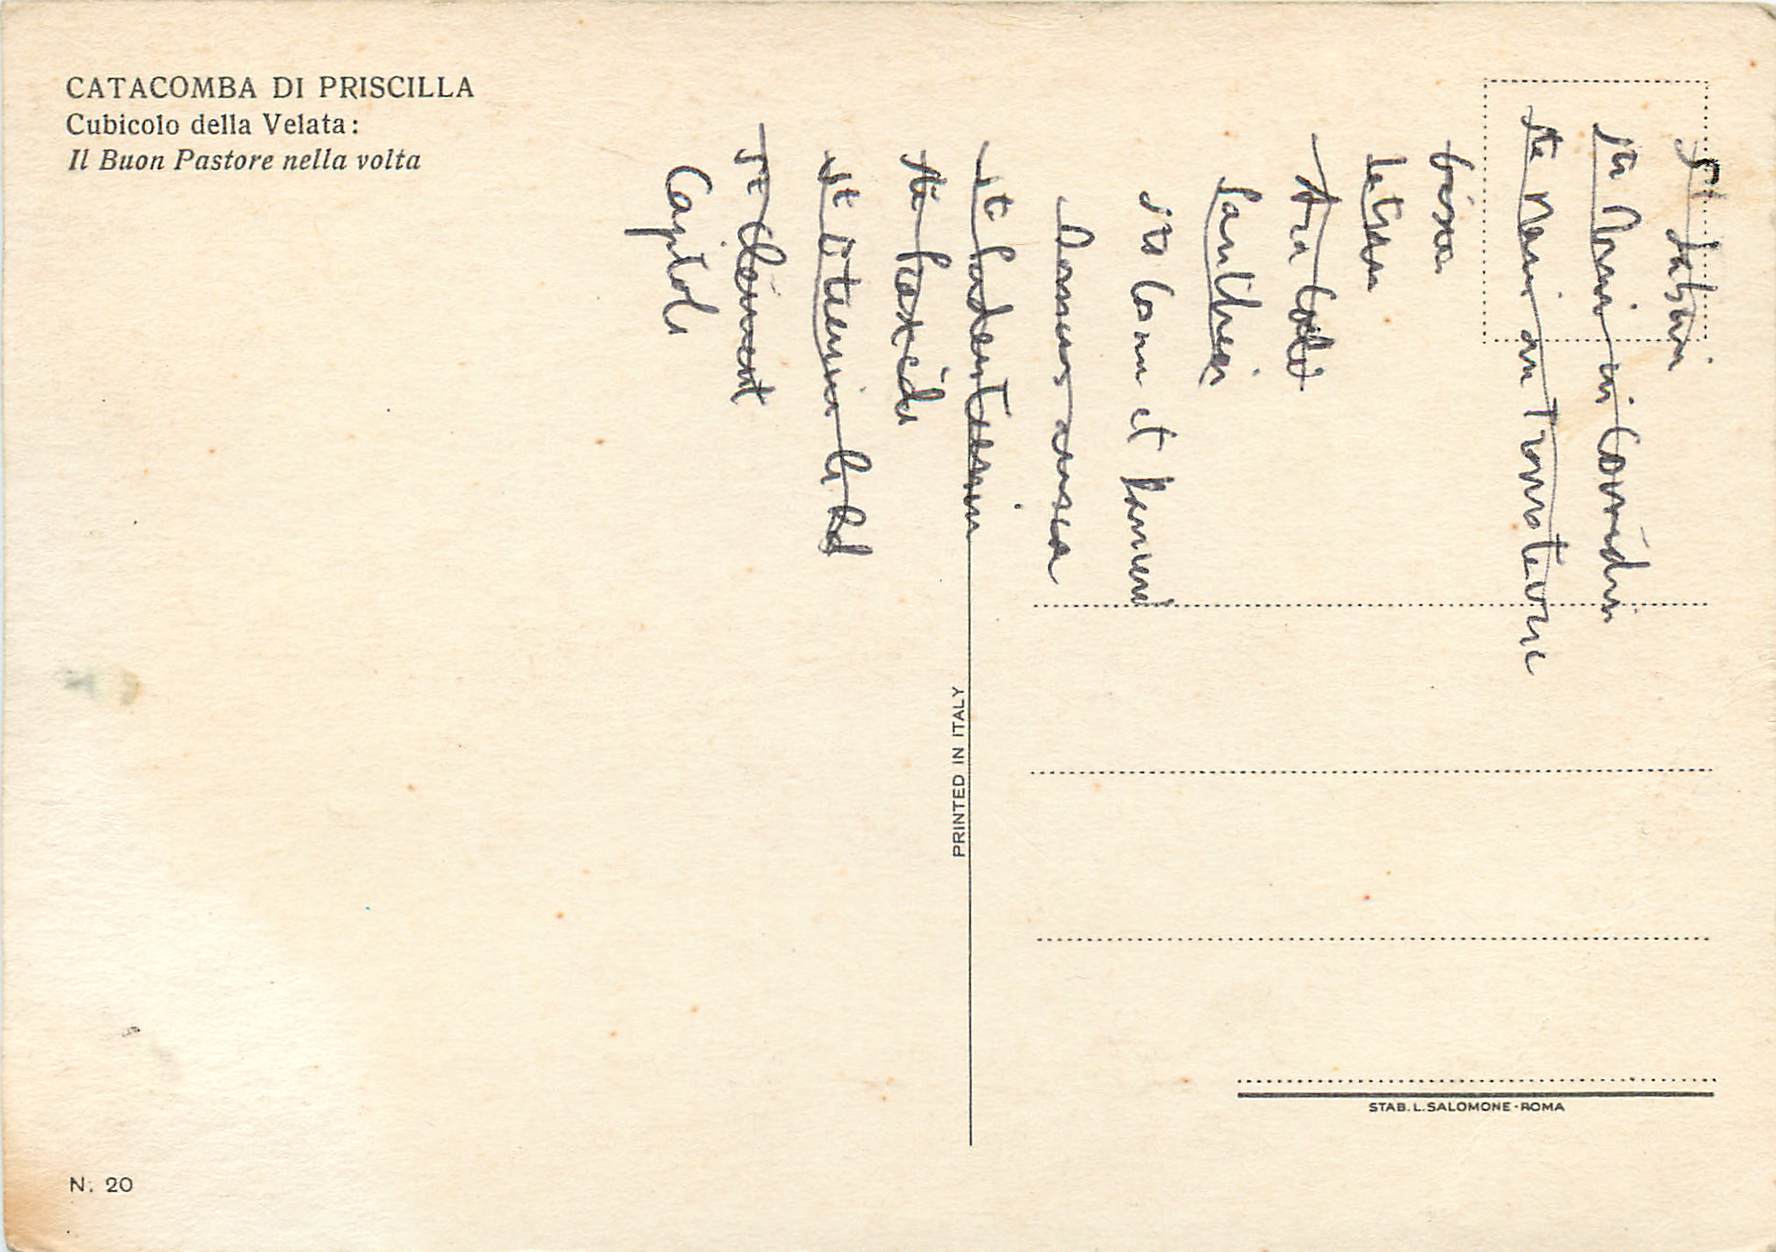 CATACOMBA DI PRISCILLA
Cubicolo della Velata:
Il Buon Pastore nella volta
St Sabin
Ste Marie in Cosmedin
Ste Marie in Trastevere
Latran
Ara Coeli
Pantheon
Sts Come et
Domus aurea
St Pudentienne
Ste Praxède
St
St Clément
Capitole
PRINTED IN ITALY
STAB. L. SALOMONE - ROMA
N. 20